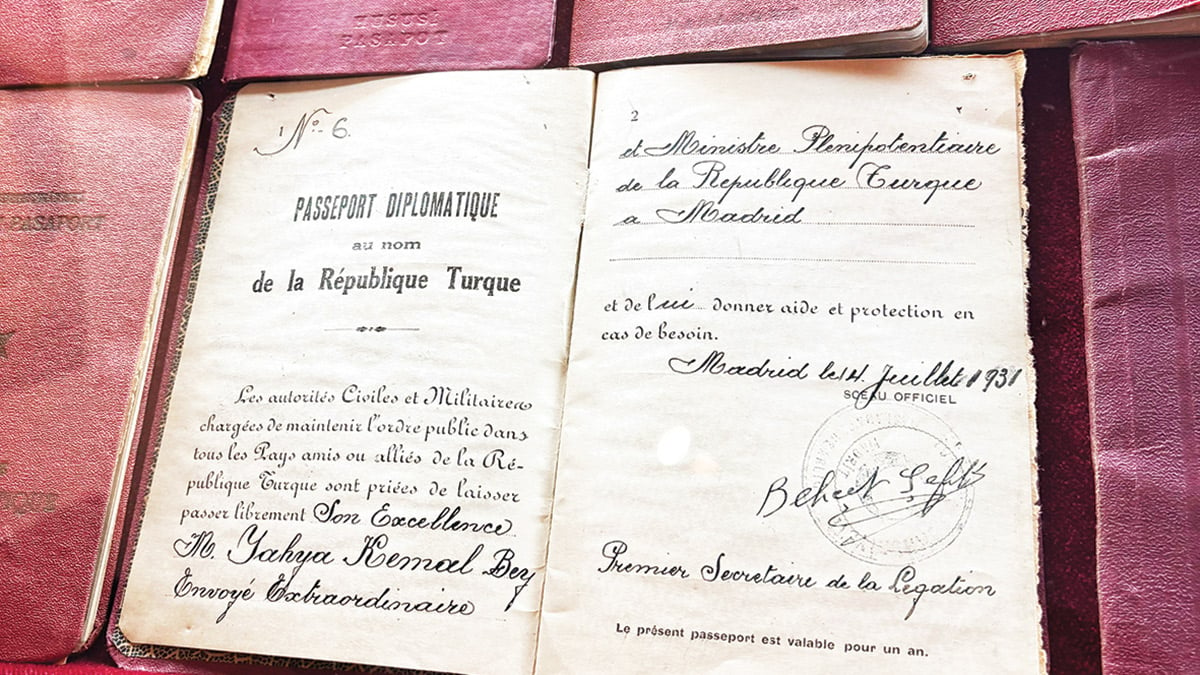 HUSUSÎ
PASAPOT
PASAPORT
1
Nº 6.
PASSEPORT DIPLOMATIQUE
au nom
de la République Turque
Les autorités Civiles et Militaires
chargées de maintenir l'ordre public dans
tous les Pays amis ou alliés de la Ré-
publique Turque sont priées de laisser
passer librement Son Excellence
M. Yahya Kemal Bey
Envoyé Extraordinaire
2
et Ministre Plenipotentiaire
de la Republique Turque
a Madrid
et de l'ui donner aide et protection en
cas de besoin.
Madrid le 14 Juillet 1931
SCEAU OFFICIEL
Behcet
Premier Secretaire de la Legation
Le présent passeport est valable pour un an.